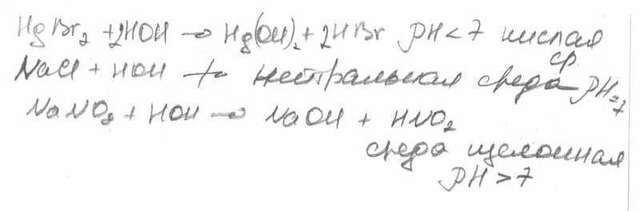 HgBr₂ + 2HOH → Hg(OH)₂ + 2HBr PH < 7 кислая ср.
NaCl + HOH ↛ нейтральная среда PH=7
NaNO₂ + HOH → NaOH + HNO₂
среда щелочная
PH > 7